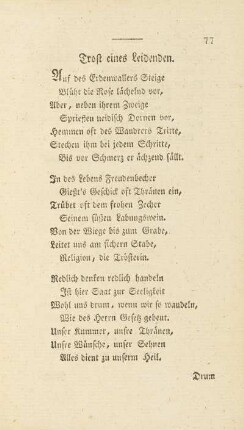 77
Trost eines Leidenden.
Auf des Erdenwallers Steige
Blüht die Rose lächelnd vor,
Aber, neben ihrem Zweige
Sprießen neidisch Dornen vor,
Hemmen oft des Wandrers Tritte,
Stechen ihm bei jedem Schritte,
Bis vor Schmerz er ächzend fällt.
In des Lebens Freudenbecher
Gießt's Geschick oft Thränen ein,
Trübet oft dem frohen Zecher
Seinem süßen Labungswein.
Von der Wiege bis zum Grabe,
Leitet uns am sichern Stabe,
Religion, die Trösterin.
Redlich denken redlich handeln
Ist hier Saat zur Seeligkeit
Wohl uns drum, wenn wir so wandeln,
Wie des Herrn Gesetz gebeut.
Unser Kummer, unsre Thränen,
Unsre Wünsche, unser Sehnen
Alles dient zu unserm Heil.
Drum